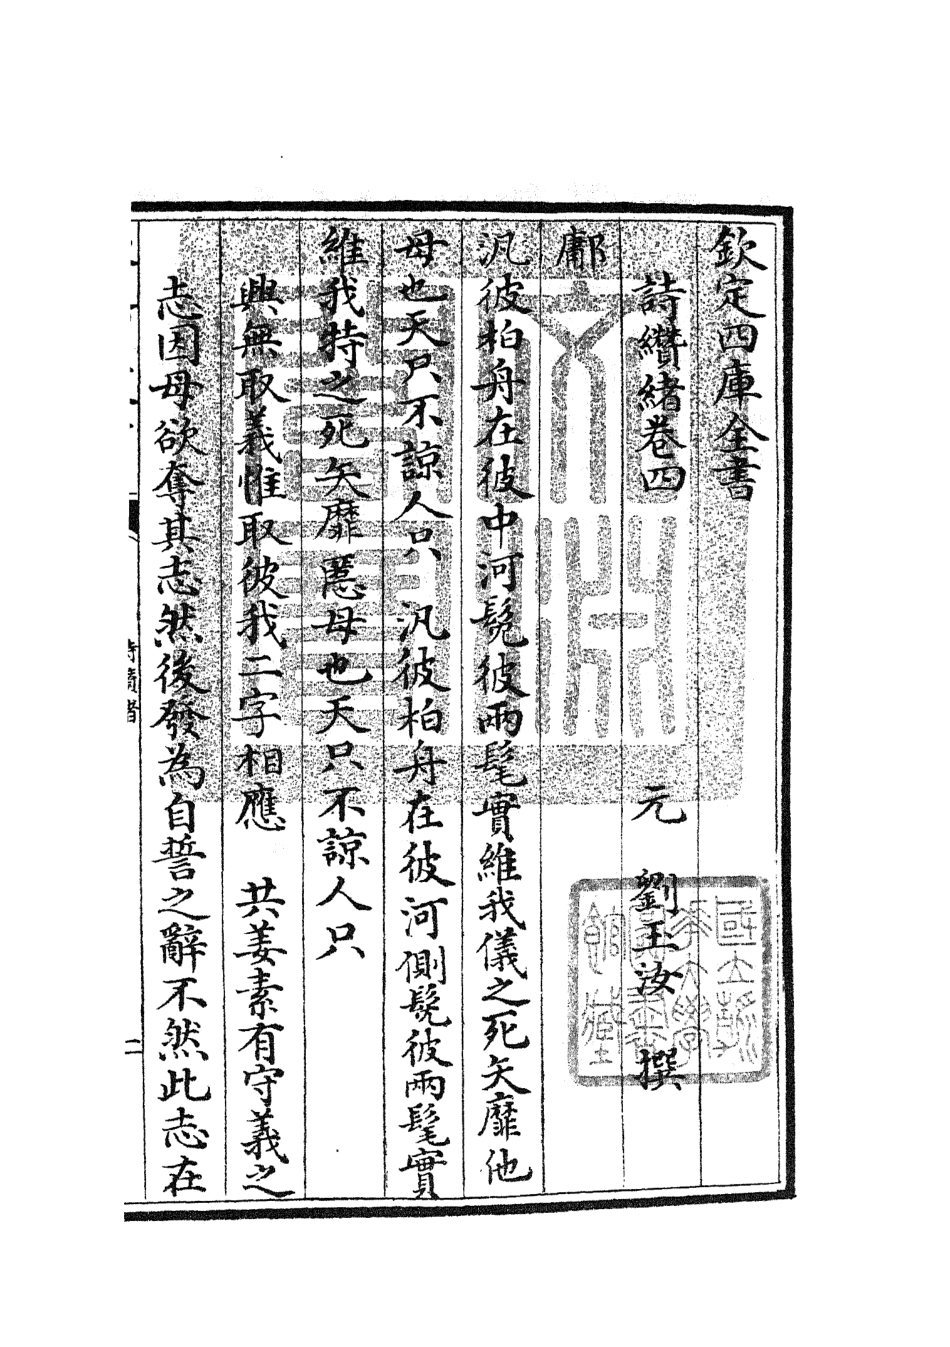 欽定四庫全書
詩纘緒卷四
元 劉玉汝 撰
鄘
汎彼柏舟在彼中河髧彼兩髦實維我儀之死矢靡他
母也天只不諒人只 汎彼柏舟在彼河側髧彼兩髦實
維我特之死矢靡慝母也天只不諒人只
興無取義惟取彼我二字相應 共姜素有守義之
志因母欲奪其志然後發為自誓之辭不然此志在
詩纘緒